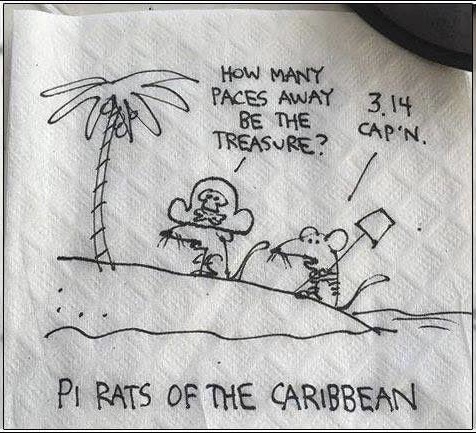 HOW MANY
PACES AWAY
BE THE
TREASURE?
3.14
CAP'N.
PI RATS OF THE CARIBBEAN